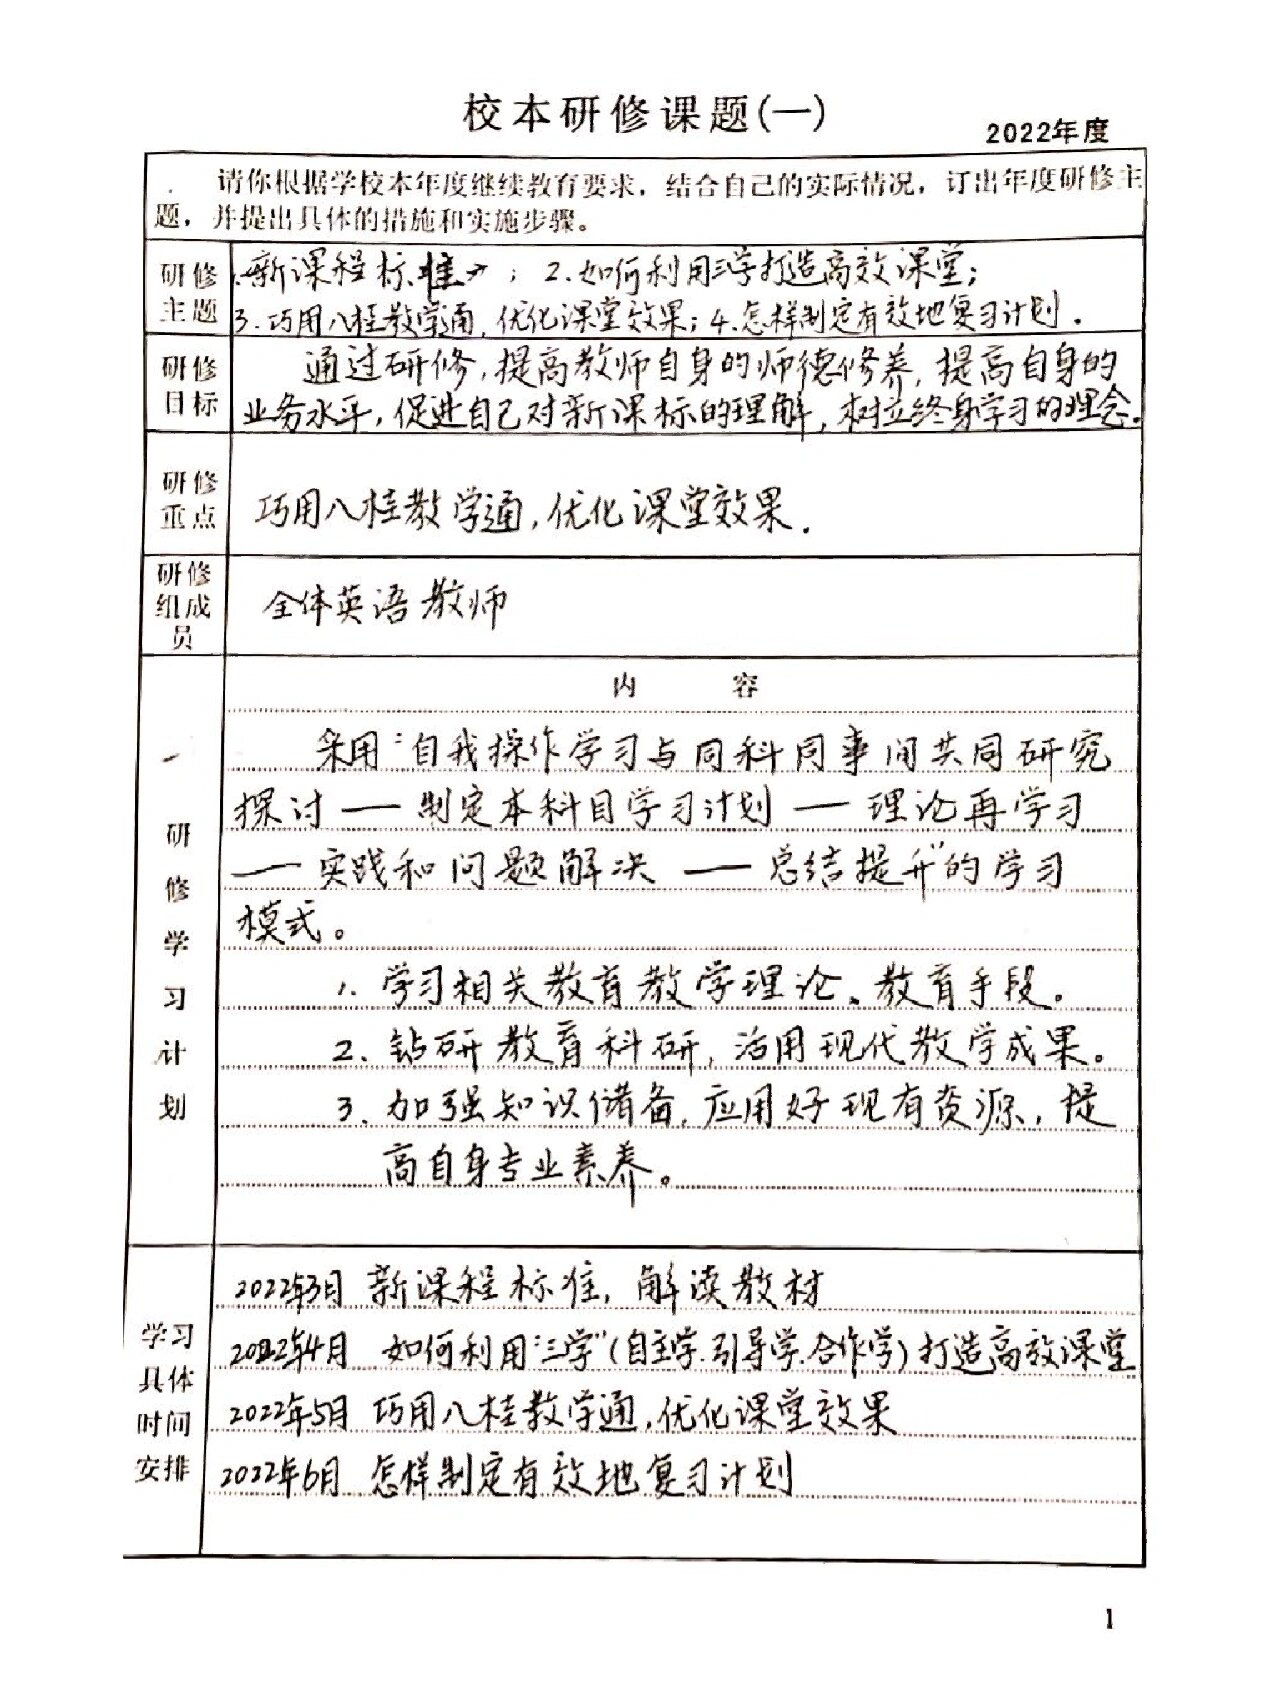 校本研修课题(一)
2022年度
请你根据学校本年度继续教育要求，结合自己的实际情况，订出年度研修主
题，并提出具体的措施和实施步骤。
研修
主题
1.新课程标准》；2.如何利用三学打造高效课堂；
3.巧用八桂教学通，优化课堂效果；4.怎样制定有效地复习计划.
研修
目标
通过研修，提高教师自身的师德修养，提高自身的
业务水平，促进自己对新课标的理解，树立终身学习的理念。
研修
重点
巧用八桂教学通，优化课堂效果.
研修
组成
员
全体英语教师
研
修
学
习
计
划
内 容
采用“自我操作学习与同科同事间共同研究
探讨——制定本科目学习计划——理论再学习
——实践和问题解决——总结提升”的学习
模式。
1.学习相关教育教学理论、教育手段。
2.钻研教育科研，活用现代教学成果。
3.加强知识储备，应用好现有资源，提
高自身专业素养。
学习
具体
时间
安排
2022年3月 新课程标准，解读教材
2022年4月 如何利用“三学”(自主学.引导学.合作学)打造高效课堂
2022年5月 巧用八桂教学通，优化课堂效果
2022年6月 怎样制定有效地复习计划
1